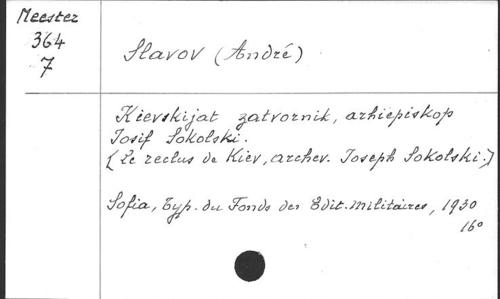 Meester
364
7
Slavov (André)
Kievskijat zatvornik, arhiepiskop
Iosif Sokolski.
[Le reclus de Kiev, archev. Joseph Sokolski.]
Sofia, Typ. du Fonds des Edit. militaires, 1930
16°